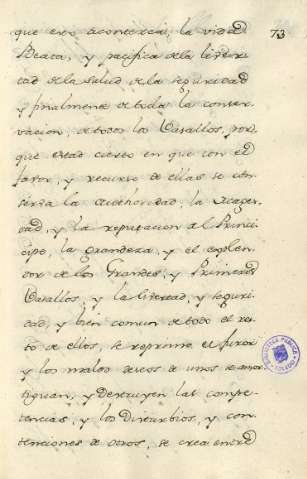 73
que eres acontezca, la vida
Beata, y pacifica de la liver
tad de la Salud de la seguridad
y finalmente de toda la conser-
vacion, de todos los Vasallos, por
que estad cierto en que con el
favor, y recurso de ellas se con-
serba la authoridad, la Mages-
tad, y la reputacion al Prin-
cipe, la grandeza, y el esplen-
dor de los Grandes, y Primeros
Vasallos, y la livertad, y seguri-
dad, y bien comun de todo el res-
to de ellos, se reprime el furor
y los malos deseos de unos se amor
tiguan, y destruyen las compe-
tencias, y los Disturbios, y con-
tenciones de otros, se crea entre
BIBLIOTECA PUBLICA
TOLEDO